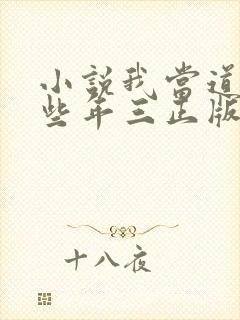 小説我當道
些年三正版
十八夜